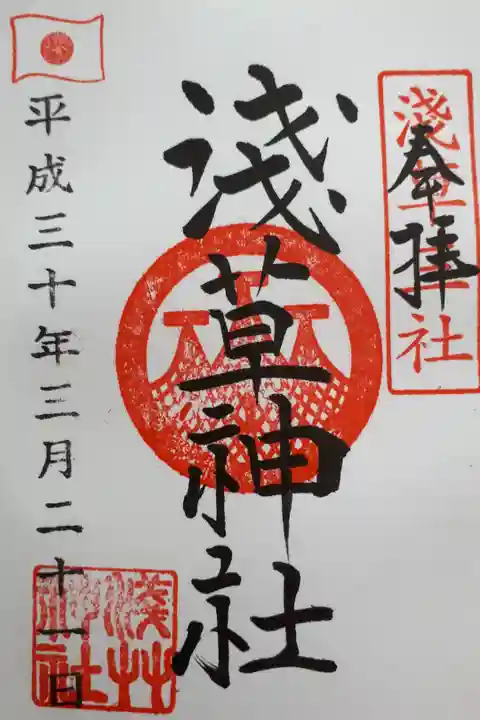 奉拝
淺草神社
淺草神社
平成三十年三月二十一日
淺草神社